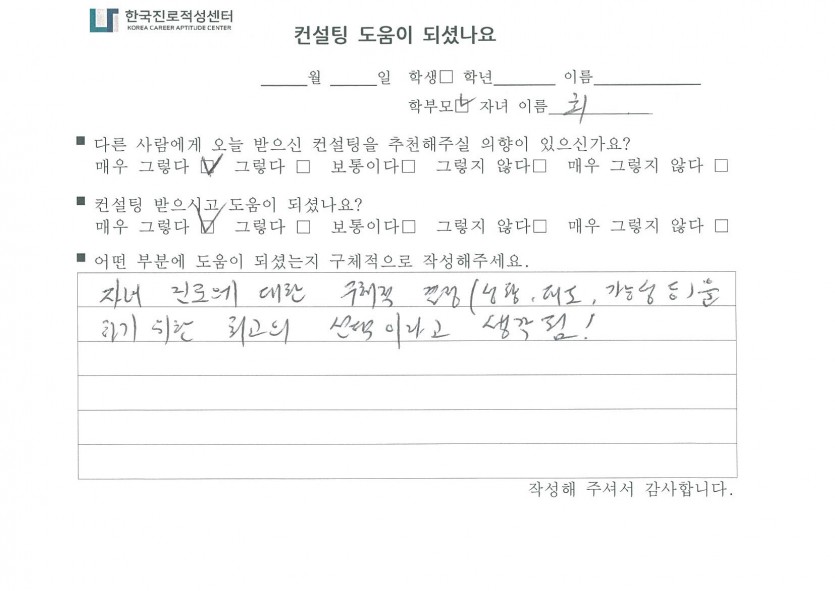 한국진로적성센터
KOREA CAREER APTITUDE CENTER
컨설팅 도움이 되셨나요
월 일 학생□ 학년 이름
학부모☑ 자녀 이름 최
■ 다른 사람에게 오늘 받으신 컨설팅을 추천해주실 의향이 있으신가요?
매우 그렇다 ☑ 그렇다 □ 보통이다□ 그렇지 않다□ 매우 그렇지 않다 □
■ 컨설팅 받으시고 도움이 되셨나요?
매우 그렇다 ☑ 그렇다 □ 보통이다□ 그렇지 않다□ 매우 그렇지 않다 □
■ 어떤 부분에 도움이 되셨는지 구체적으로 작성해주세요.
자녀 진로에 대한 구체적 결정 (방향, 태도, 가능성 등)을
하기 위한 최고의 선택이라고 생각됨!
작성해 주셔서 감사합니다.